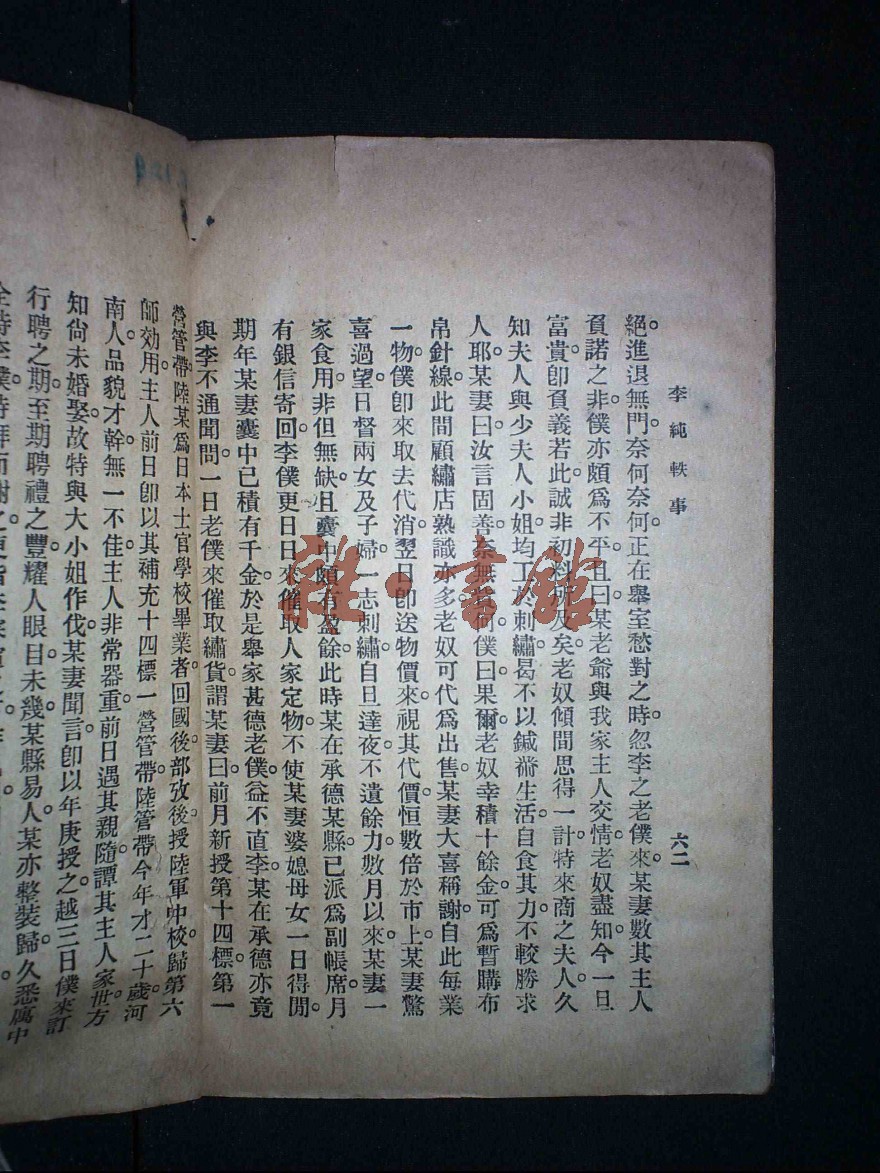 李純軼事
六二
絕進退無門奈何奈何。正在舉室愁對之時。忽李之老僕來。某妻數其主人
負諾之非。僕亦頗爲不平。且曰某老爺與我家主人交情老奴盡知。今一旦
富貴。卽負義若此。誠非初料所及矣。老奴傾間思得一計特來商之夫人。久
知夫人與少夫人小姐均工於刺繡。曷不以鍼黹生活。自食其力。不較勝求
人耶。某妻曰。汝言固善。奈無資何。僕曰。果爾。老奴幸積十餘金。可爲暫購布
帛針線。此問顧繡店熟識亦多。老奴可代爲出售。某妻大喜稱謝。自此每業
一物。僕卽來取去代消。翌日卽送物價來。視其代價恒數倍於市上。某妻驚
喜過望。日督兩女及子婦。一志刺繡。自旦達夜不遺餘力。數月以來。某妻一
家食用。非但無缺。且囊中頗有盈餘。此時某在承德某縣。已派爲副帳席。月
有銀信寄回。李僕更日日來催取人家定物。不使某妻婆媳母女一日得閒。
期年某妻囊中已積有千金。於是舉家甚德老僕。益不直李。某在承德亦竟
與李不通聞問。一日老僕來催取繡貨。謂某妻曰。前月新授第十四標第一
營管帶陸某。爲日本士官學校畢業者。回國後部攷後授陸軍中校。歸第六
師効用。主人前日卽以其補充十四標一營管帶。陸管帶今年才二十歲。河
南人。品貌才幹無一不佳。主人非常器重。前日遇其親隨。譚其主人家世。方
知尙未婚娶。故特與大小姐作伐。某妻聞言。卽以年庚授之。越三日僕來訂
行聘之期。至期聘禮之豐。耀人眼目。未幾某縣易人。某亦整裝歸。久悉寓中
雜·書館